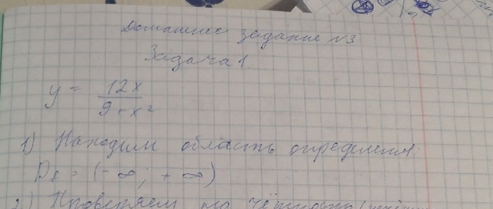 Домашнее задание №3
Задача 1
y = 12x / 9+x²
1) Находим область определения
D_f = (-∞; +∞)
2) Проверяем на чётность